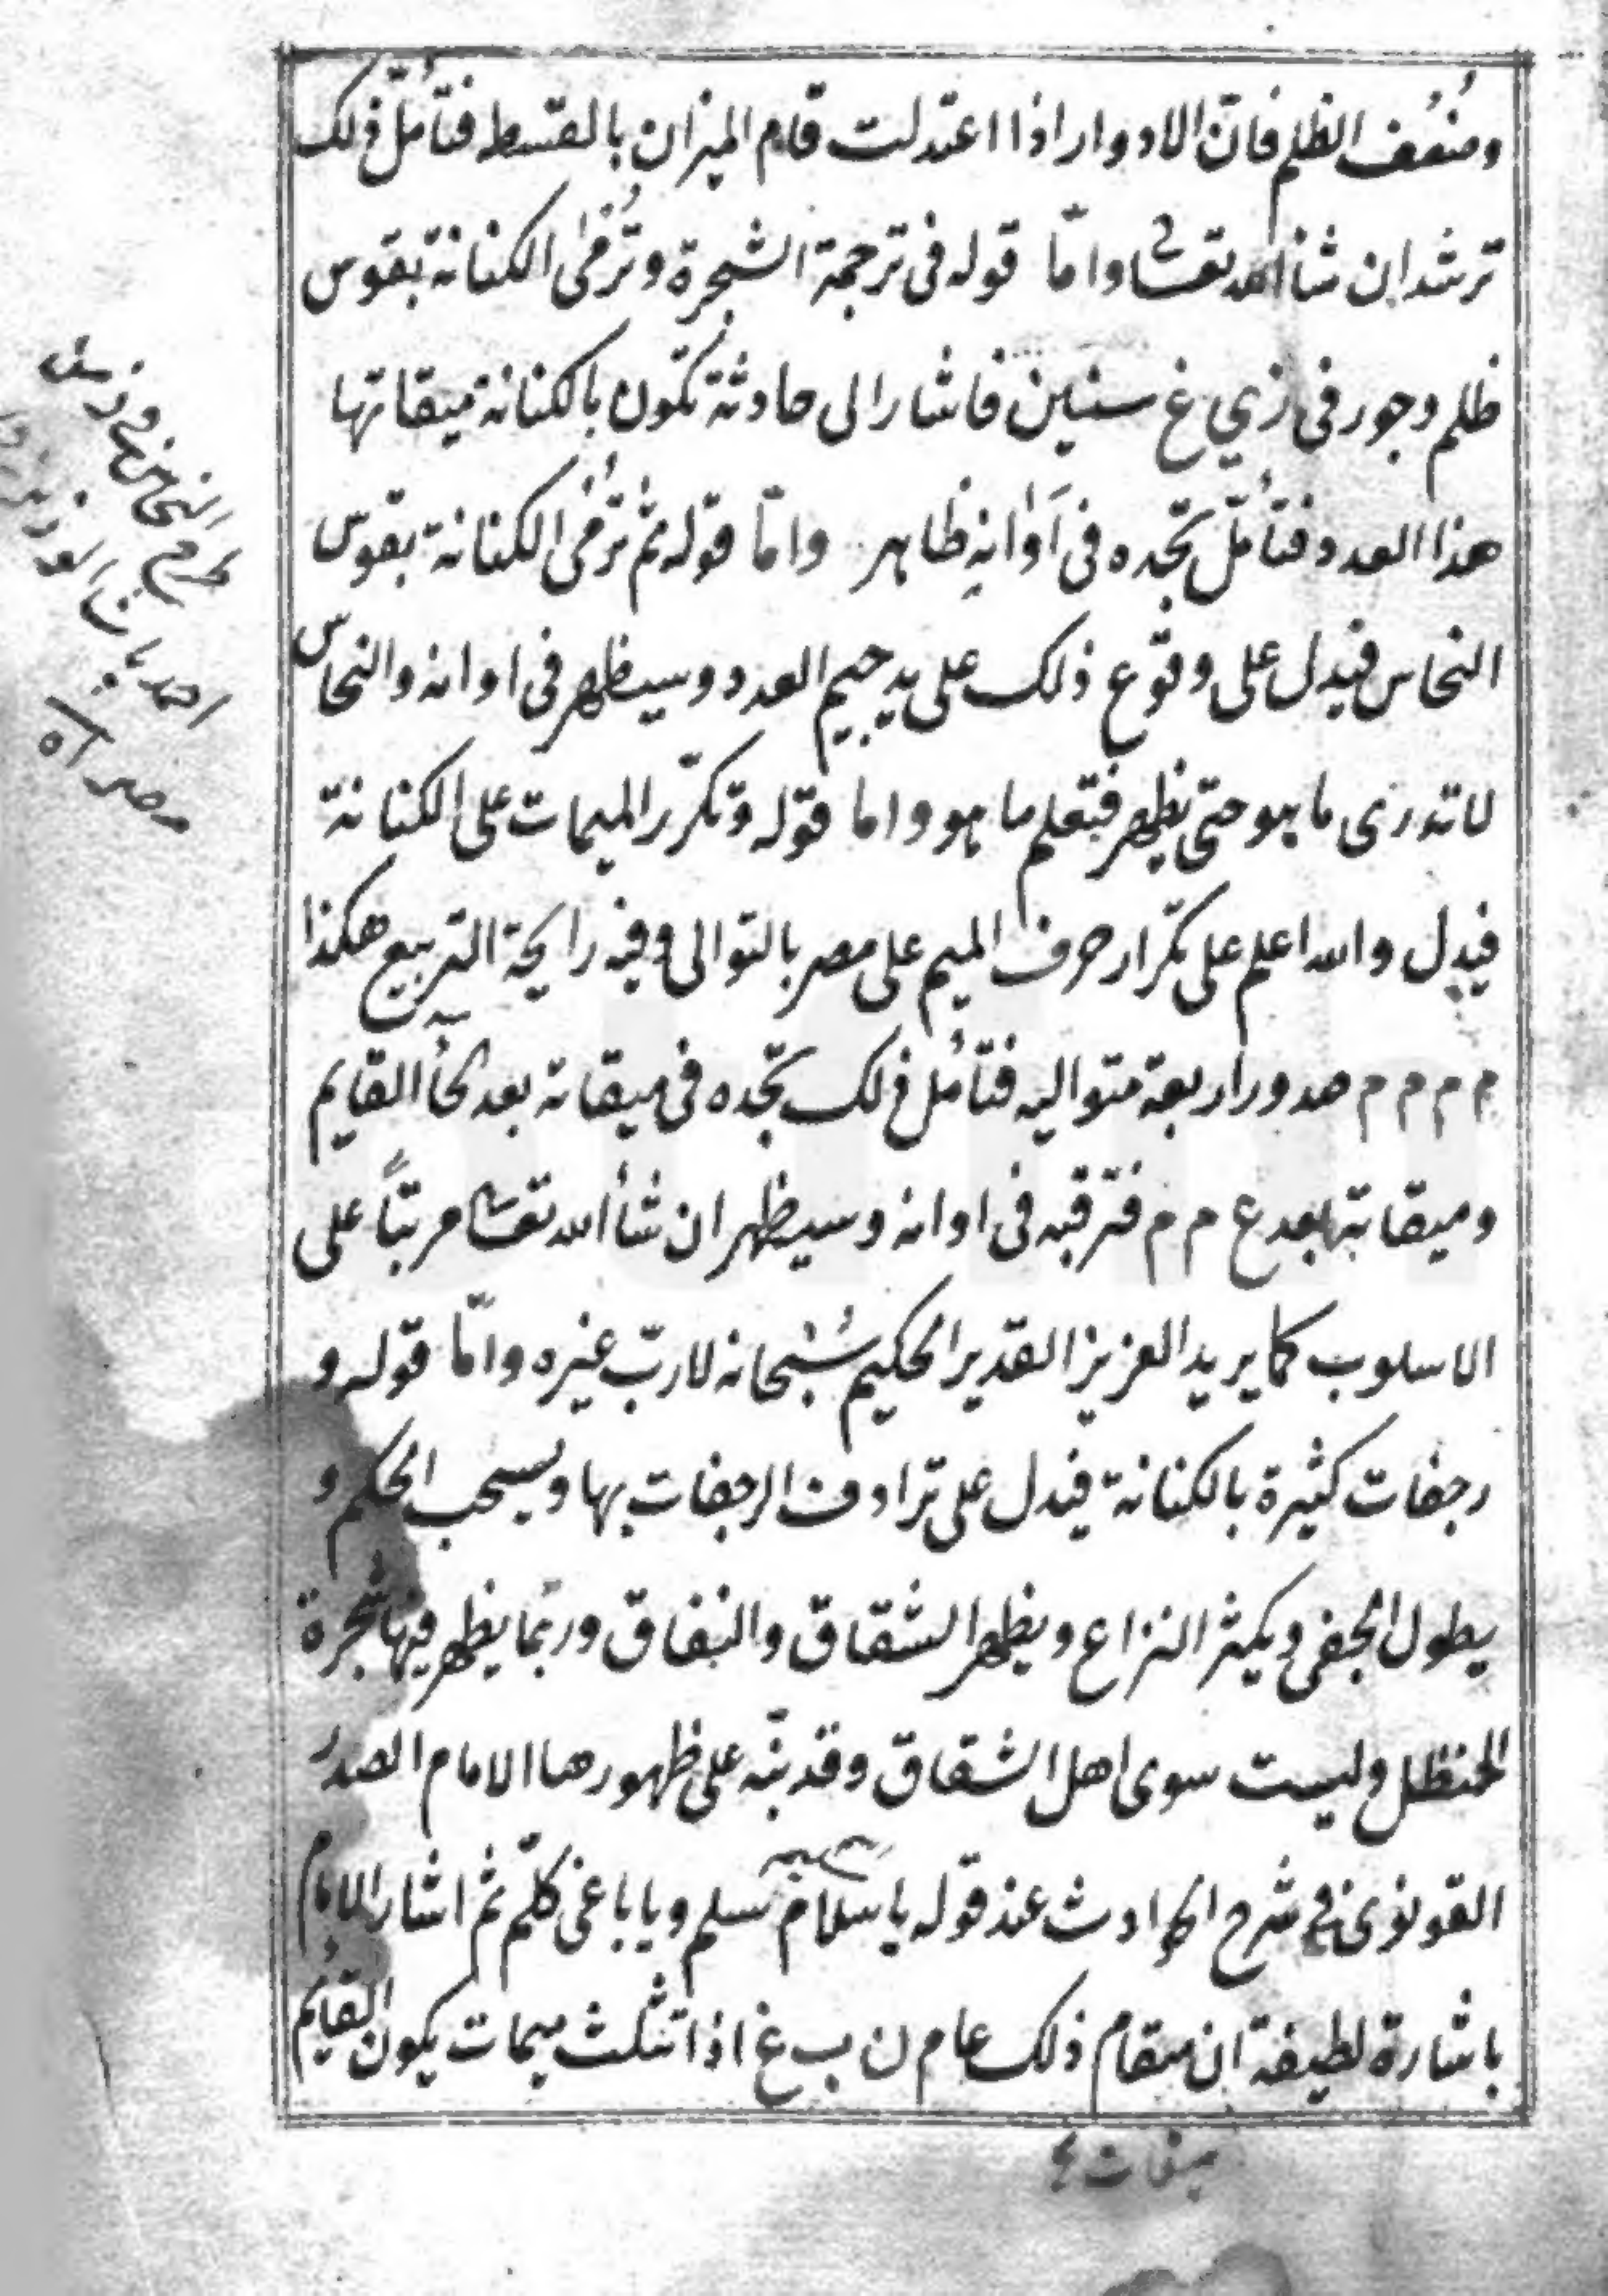 وضُعُف الظلم فانّ الادوار اذا اعتدلت قام الميزان بالقسط فتأمّل ذلك
ترشد ان شاء الله تعالى وامّا قوله فى ترجمة الشجرة وتُرمى الكنانة بقوس
ظلم وجور فى زي غ سنين فاشار الى حادثة تكون بالكنانة ميقاتها
هذا العدد فتأمّل تجده فى آوانهِ ظاهر وامّا قوله ثم ترمى الكنانة بقوس
النحاس فيدل على وقوع ذلك على يد جيم العدد وسيظهر فى اوانه والنحاس
لا تدرى ما هو حتى يظهر فتعلم ما هو واما قوله وتكرّر الميمات على الكنانة
فيدل والله اعلم على تكرار حرف الميم على مصر بالتوالى وفيه رايحة التربيع هكذا
م م م م هدور اربعة متواليه فتأمل ذلك تجده فى ميقاته بعد الحاء القايم
وميقاتها بعد ع م م فترقبه فى اوانه وسيظهر ان شاء الله تعالى مرتبًا على
الاسلوب كما يريد العزيز القدير الحكيم سُبْحانه لا ربّ غيره وامّا قوله و
رجفات كثيرة بالكنانة فيدل على ترادف الرجفات بها ويسحب الحكم و
يطول الجفى ويكثر النزاع ويظهر الشقاق والنفاق وربما يظهر فيها شجرة
الحنظل وليست سوى اهل الشقاق وقد نبّه على ظهورها الامام الصدر
القونوى فى شرح الحوادث عند قوله يا سلام سلم ويا باغى كلّم ثم اشار الامام
باشارة لطيفة ان مقام ذلك عام ن ب غ اذا تثلث ميمات يكون القايم
النحاس
احمد باشا
مصر اه